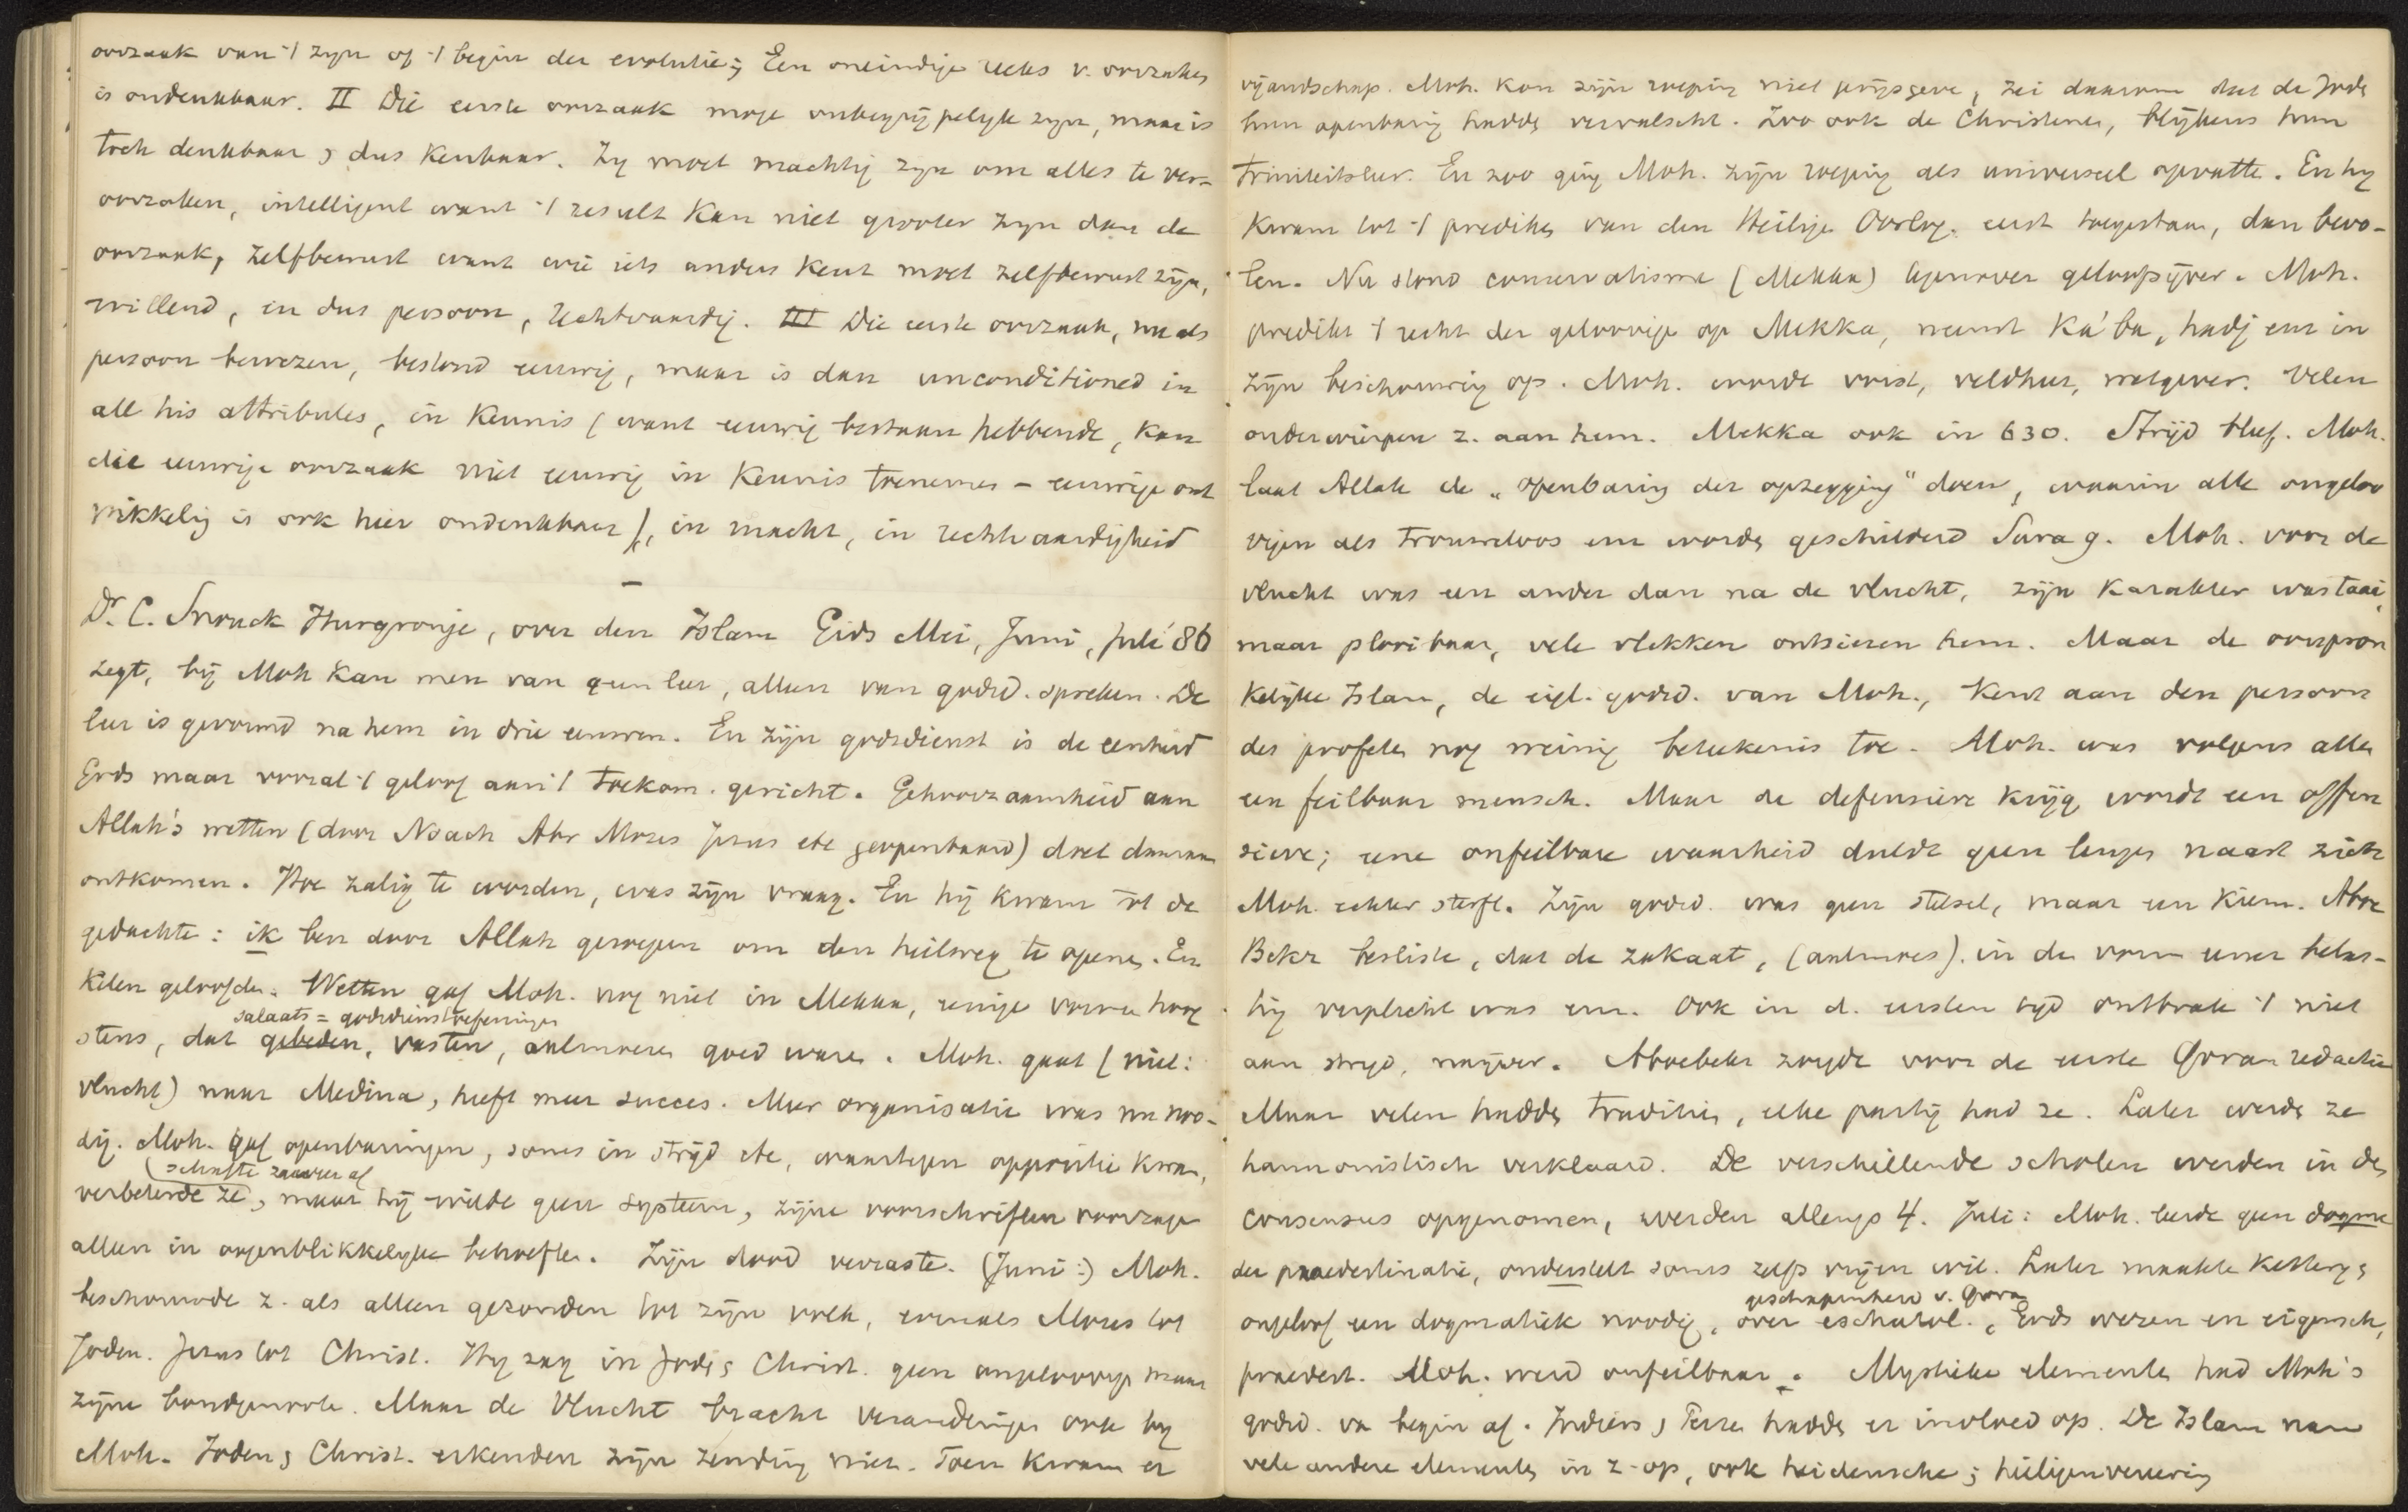 oorzaak van 't zyn of 't begin der evolutie; Een oneindige reeks v. oorzaken
is ondenkbaar. II Die eerste oorzaak moge onbegrypelyk zyn, maar is
toch denkbaar, dus kenbaar. Zy moet machtig zyn om alles te ver-
oorzaken, intelligent want 't result kan niet grooter zyn dan de
oorzaak, zelfbewust want wie iets anders kent moet zelfbewust zyn,
willend, en dus persoon, rechtvaardig. III Die eerste oorzaak, nu als
persoon bewezen, bestond eeuwig, maar is dan unconditioned in
all his attributes, in kennis (want eeuwig bestaan hebbende, kan
die eeuwige oorzaak niet eeuwig in kennis toenemen - eeuwige ont
wikkelig is ook hier ondenkbaar), in macht, in rechtvaardigheid
Dr. C. Snouck Hurgronje, over den Islam Gids Mei, Juni, Juli '86
zegt, bij Moh kan men van geen leer, alleen van godsd. spreken. De
leer is gevormd na hem in drie eeuwen. En zijn godsdienst is de eenheid
Gods maar vooral 't geloof aan 't toekom. gericht. Gehoorzaamheid aan
Allah's wetten (door Noach Abr Mozes Jezus etc geopenbaard) doet daaraan
ontkomen. Hoe zalig te worden, was zijn vraag. En hij kwam tot de
gedachte: ik ben door Allah geroepen om den heilsweg te openen. En
kelen geloofden. Wetten gaf Moh. nog niet in Mekka, eenige vorme hoog
salaats = godsdienstoefeningen
stens, dat gebeden, vasten, aalmoezen goed waren. Moh. gaat (niet:
vlucht) naar Medina, heeft meer succes. Meer organisatie was nu noo-
dig. Moh. gaf openbaringen, soms in strijd etc, waartegen oppositie kwam,
schafte ze af
verbeterde ze, maar hij wilde geen systeem, zijne voorschriften voorzagen
alleen in oogenblikkelyke behoeften. Zijn dood verraste. (Juni:) Moh.
beschouwde z. als alleen gezonden tot zijn volk, evenals Mozes tot
Joden. Jezus tot Christ. Hy zag in Joden, Christ. geen ongeloovige maar
zijne bondgenoote. Maar de Vlucht bracht veranderingen ook by
Moh. Joden, Christ. erkenden zijn zending niet. Toen kwam er
vijandschap. Moh. kon zijn roeping niet prijsgeve, zei daarom dat de Joden
hun openbaring hadden vervalscht. Zoo ook de Christenen, blijkens hun
triniteitsleer. En zoo ging Moh. zijn roeping als universeel opvatte. En hy
kwam tot 't prediken van den Heilige Oorlog. eerst toegestaan, dan bevo-
len. Nu stond conservatisme (Mekka) tegenover geloofsijver. Moh.
predikt 't recht der geloovige op Mekka, neemt Ka'ba, hadj enz in
zijn beschouwing op. Moh. wordt vorst, veldheer, wetgever. Velen
onderwierpen z. aan hem. Mekka ook in 630. Strijd bleef. Moh.
laat Allah de „openbaring der opzegging" doen, waarin alle ongeloo
vigen als trouweloos enz worden geschilderd Sura 9. Moh. voor de
vlucht was een ander dan na de vlucht, zijn karakter was taai,
maar plooibaar, vele vlekken ontsieren hem. Maar de oorspron
kelijke Islam, de eigl. godsd. van Moh., kent aan den persoon
des profeten nog weinig beteekenis toe. Moh. was volgens allen
een feilbaar mensch. Maar de defensieve krijg wordt een offen
sieve; eene onfeilbare waarheid duldt geen leugen naast zich
Moh. echter sterft. Zijn godsd. was geen stelsel, maar een kiem. Aboe
Bekr besliste, dat de zakaat, (aalmoes). in den vorm eener belas-
ting verplicht was enz. Ook in d. eersten tyd ontbrak 't niet
aan stryd, naijver. Aboebekr zorgde voor de eerste Qoran redactie
Maar velen hadden tradities, elke partij had ze. Later werden ze
harmonistisch verklaard. De verschillende scholen werden in den
consensus opgenomen, werden allengs 4. Juli: Moh. leerde geen dogme
der praedestinatie, onderstelt soms zelfs vrijen wil. Later maakte ketterij,
geschapenheid v. Qoran
ongeloof een dogmatiek noodig, over eschatol., Gods wezen en eigensch,
praedest. Moh. werd onfeilbaar. Mystieke elementen had Moh's
godsd. van begin af. Indiërs, Perzen hadden er invloed op. De Islam nam
vele andere elementen in z. op, ook heidensche; heiligenvereering